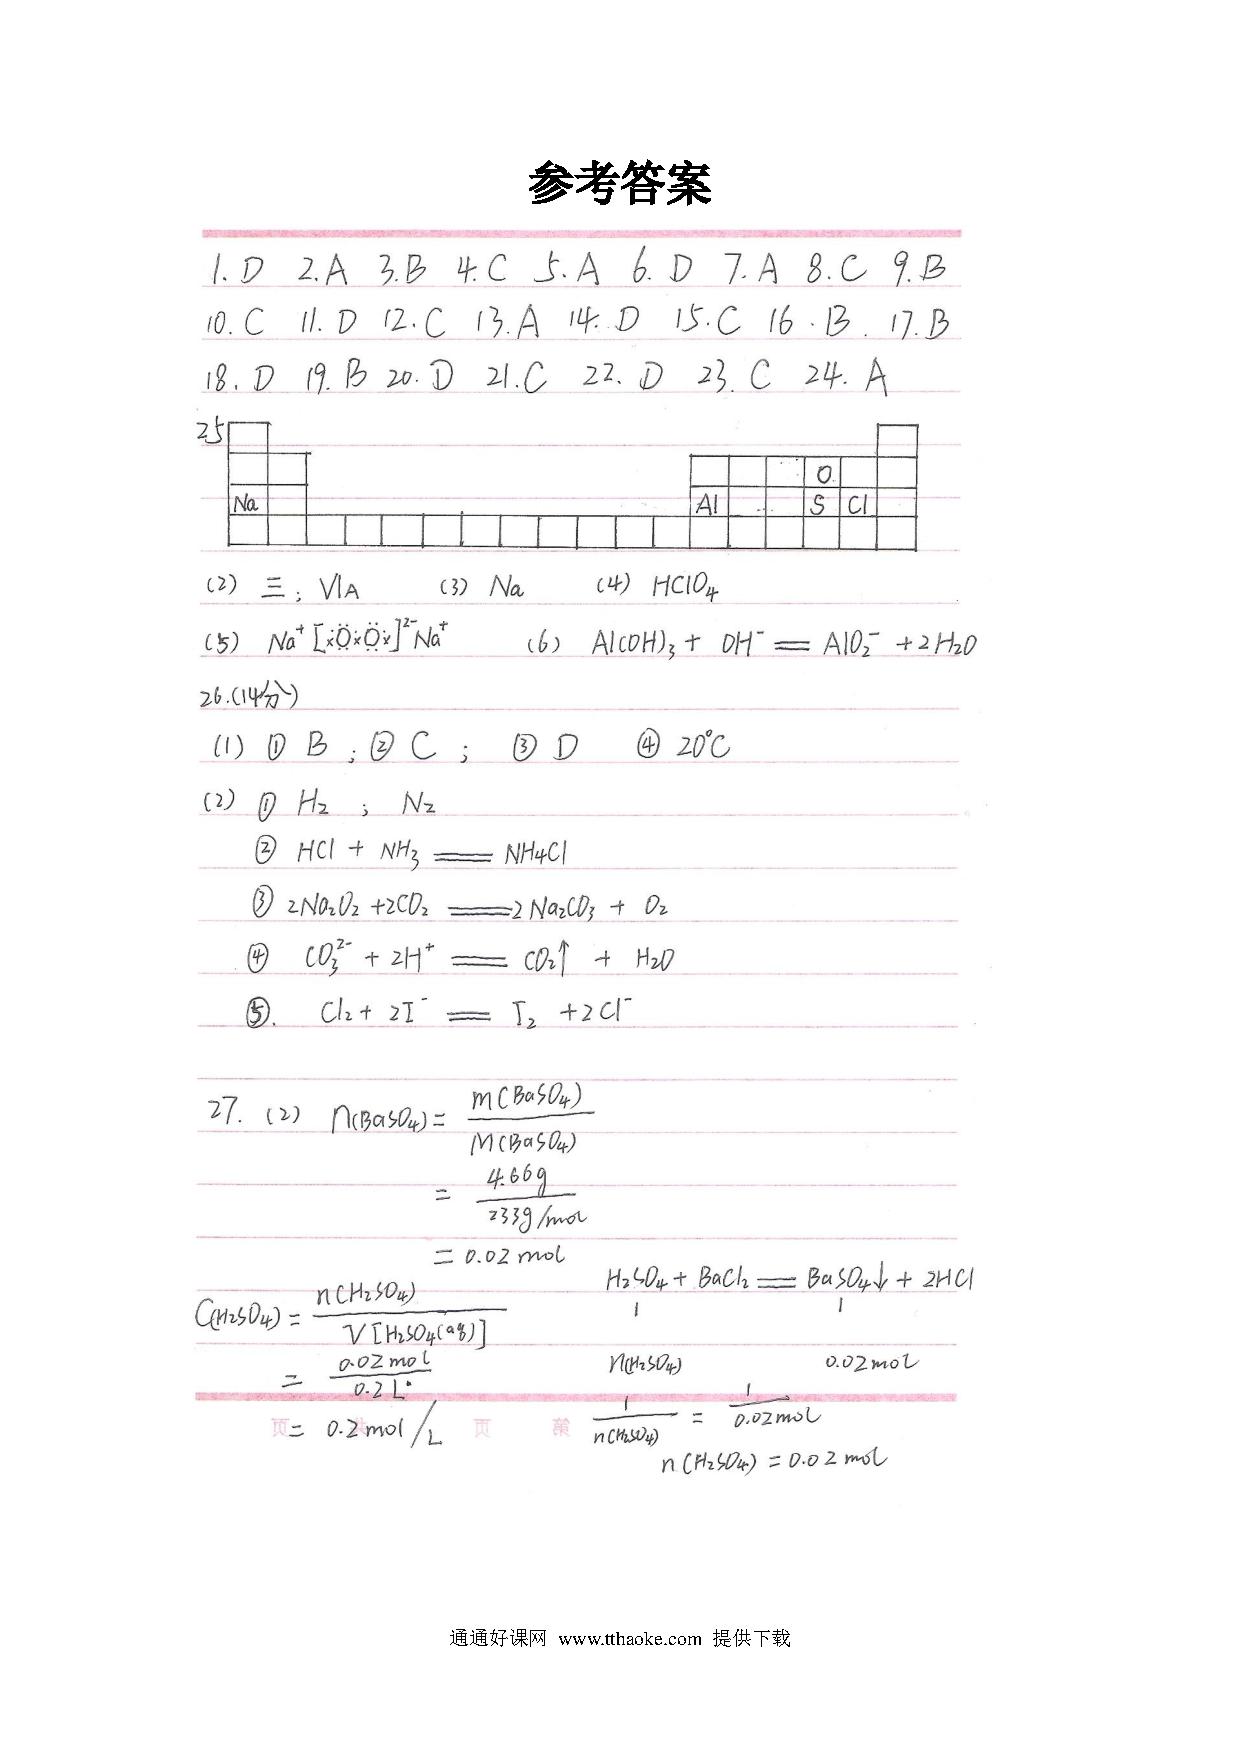 参考答案
1. D 2. A 3. B 4. C 5. A 6. D 7. A 8. C 9. B
10. C 11. D 12. C 13. A 14. D 15. C 16. B. 17. B
18. D 19. B 20. D 21. C 22. D 23. C 24. A
25
O
Na Al S Cl
(2) 三; VIA (3) Na (4) HClO₄
(5) Na⁺[ẍÖ×Öẍ]²⁻Na⁺ (6) Al(OH)₃ + OH⁻ == AlO₂⁻ + 2H₂O
26.(14分)
(1) ① B ; ② C ; ③ D ④ 20℃
(2) ① H₂ ; N₂
② HCl + NH₃ == NH₄Cl
③ 2Na₂O₂ + 2CO₂ == 2Na₂CO₃ + O₂
④ CO₃²⁻ + 2H⁺ == CO₂↑ + H₂O
⑤. Cl₂ + 2I⁻ == I₂ + 2Cl⁻
27. (2) n(BaSO₄) = m(BaSO₄) / M(BaSO₄)
= 4.66g / 233g/mol
= 0.02 mol
H₂SO₄ + BaCl₂ == BaSO₄↓ + 2HCl
1 1
n(H₂SO₄) 0.02mol
1 / n(H₂SO₄) = 1 / 0.02mol
n(H₂SO₄) = 0.02 mol
C(H₂SO₄) = n(H₂SO₄) / V[H₂SO₄(aq)]
= 0.02 mol / 0.2 L
= 0.2 mol/L
页 共 页 第
通通好课网 www.tthaoke.com 提供下载